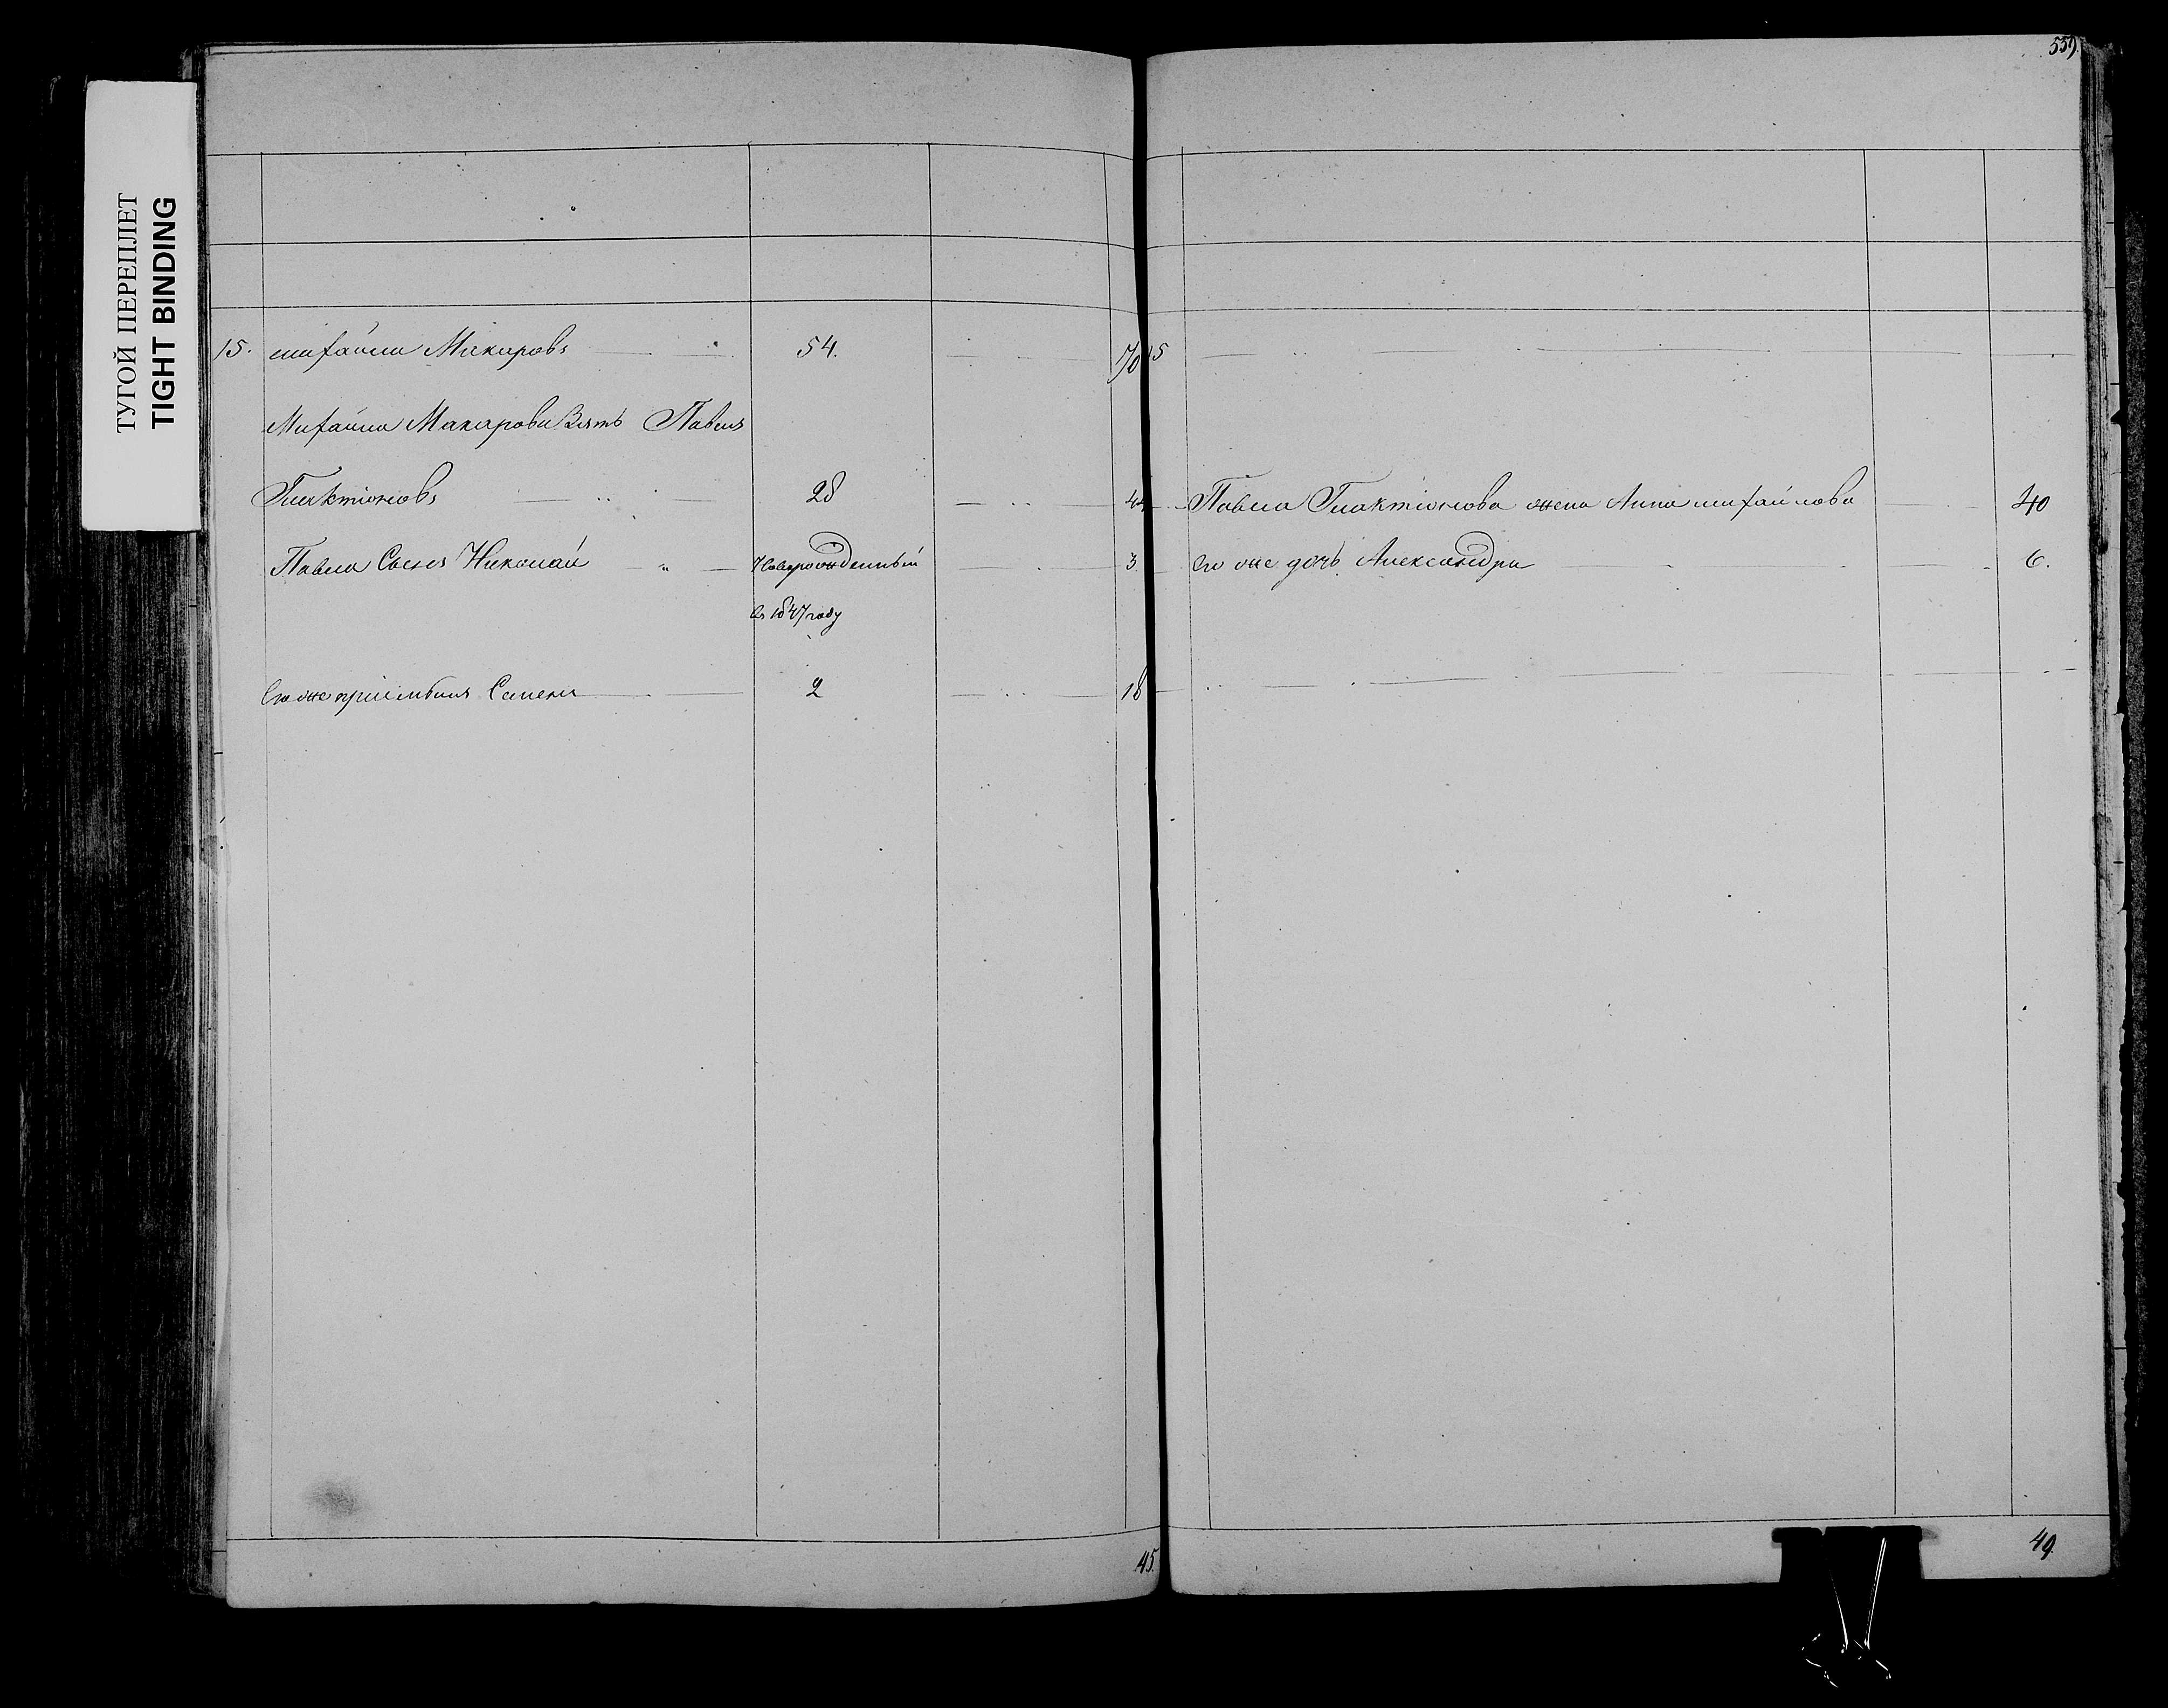 559.
ТУГОЙ ПЕРЕПЛЕТ
TIGHT BINDING
15. михайла Макаровъ 54. 70
Михайла Макарова Зять Павелъ
Глактіоновъ 28 44
Павла Сынъ Николай Новорожденный 3
въ 1847 году
Его же пріемышъ Семенъ 2 18
45.
15
Павла Глактіонова жена Анна михайлова 40
Его же дочь Александра 6.
49.